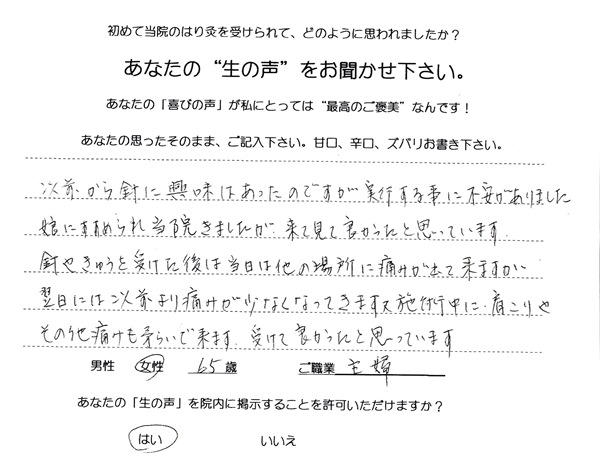 初めて当院のはり灸を受けられて、どのように思われましたか？
あなたの“生の声”をお聞かせ下さい。
あなたの「喜びの声」が私にとっては“最高のご褒美”なんです！
あなたの思ったそのまま、ご記入下さい。甘口、辛口、ズバリお書き下さい。
以前から針に興味はあったのですが実行する事に不安がありました
娘にすすめられ当院きましたが来て見て良かったと思っています.
針やきゅうを受けた後は当日は他の場所に痛みが出て来ますが
翌日には以前より痛みが少なくなってきます又施術中に肩こりや
その他痛みも柔らいで来ます.受けて良かったと思っています
男性 女性 65歳 ご職業 主婦
あなたの「生の声」を院内に掲示することを許可いただけますか？
はい いいえ